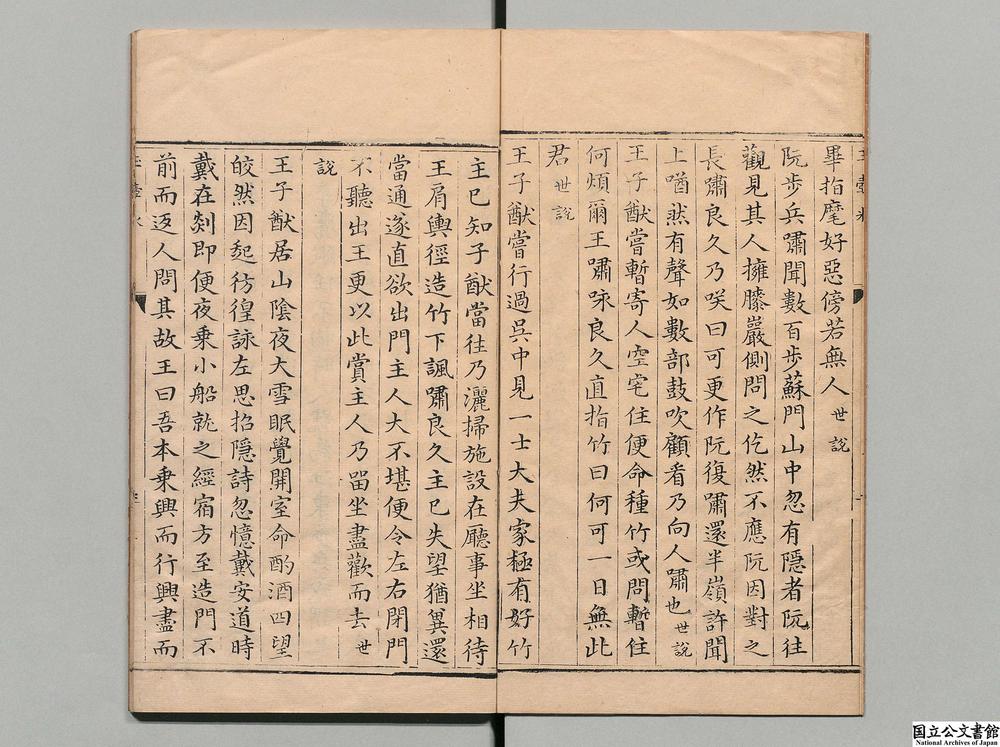 畢指麾好惡傍若無人 世說
阮步兵嘯聞數百步蘇門山中忽有隱者阮往
觀見其人擁膝巖側問之仡然不應阮因對之
長嘯良久乃咲曰可更作阮復嘯還半嶺許聞
上㗜然有聲如數部鼓吹顧看乃向人嘯也 世說
王子猷嘗暫寄人空宅住便命種竹或問暫住
何煩爾王嘯咏良久直指竹曰何可一日無此
君 世說
王子猷嘗行過吳中見一士大夫家極有好竹
主已知子猷當往乃灑掃施設在廳事坐相待
王肩輿徑造竹下諷嘯良久主已失望猶兾還
當通遂直欲出門主人大不堪便令左右閉門
不聽出王更以此賞主人乃留坐盡歡而去 世
說
王子猷居山陰夜大雪眠覺開室命酌酒四望
皎然因起彷徨詠左思招隱詩忽憶戴安道時
戴在剡即便夜乗小船就之經宿方至造門不
前而返人問其故王曰吾本乗興而行興盡而
国立公文書館
National Archives of Japan